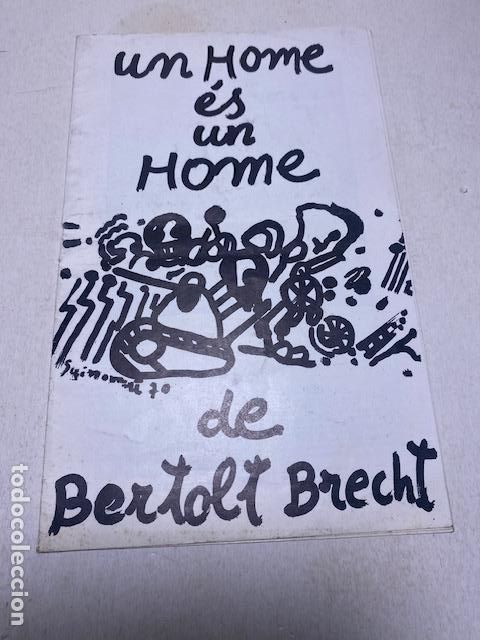 un Home
és
un
Home
70
de
Bertolt Brecht
todocoleccion